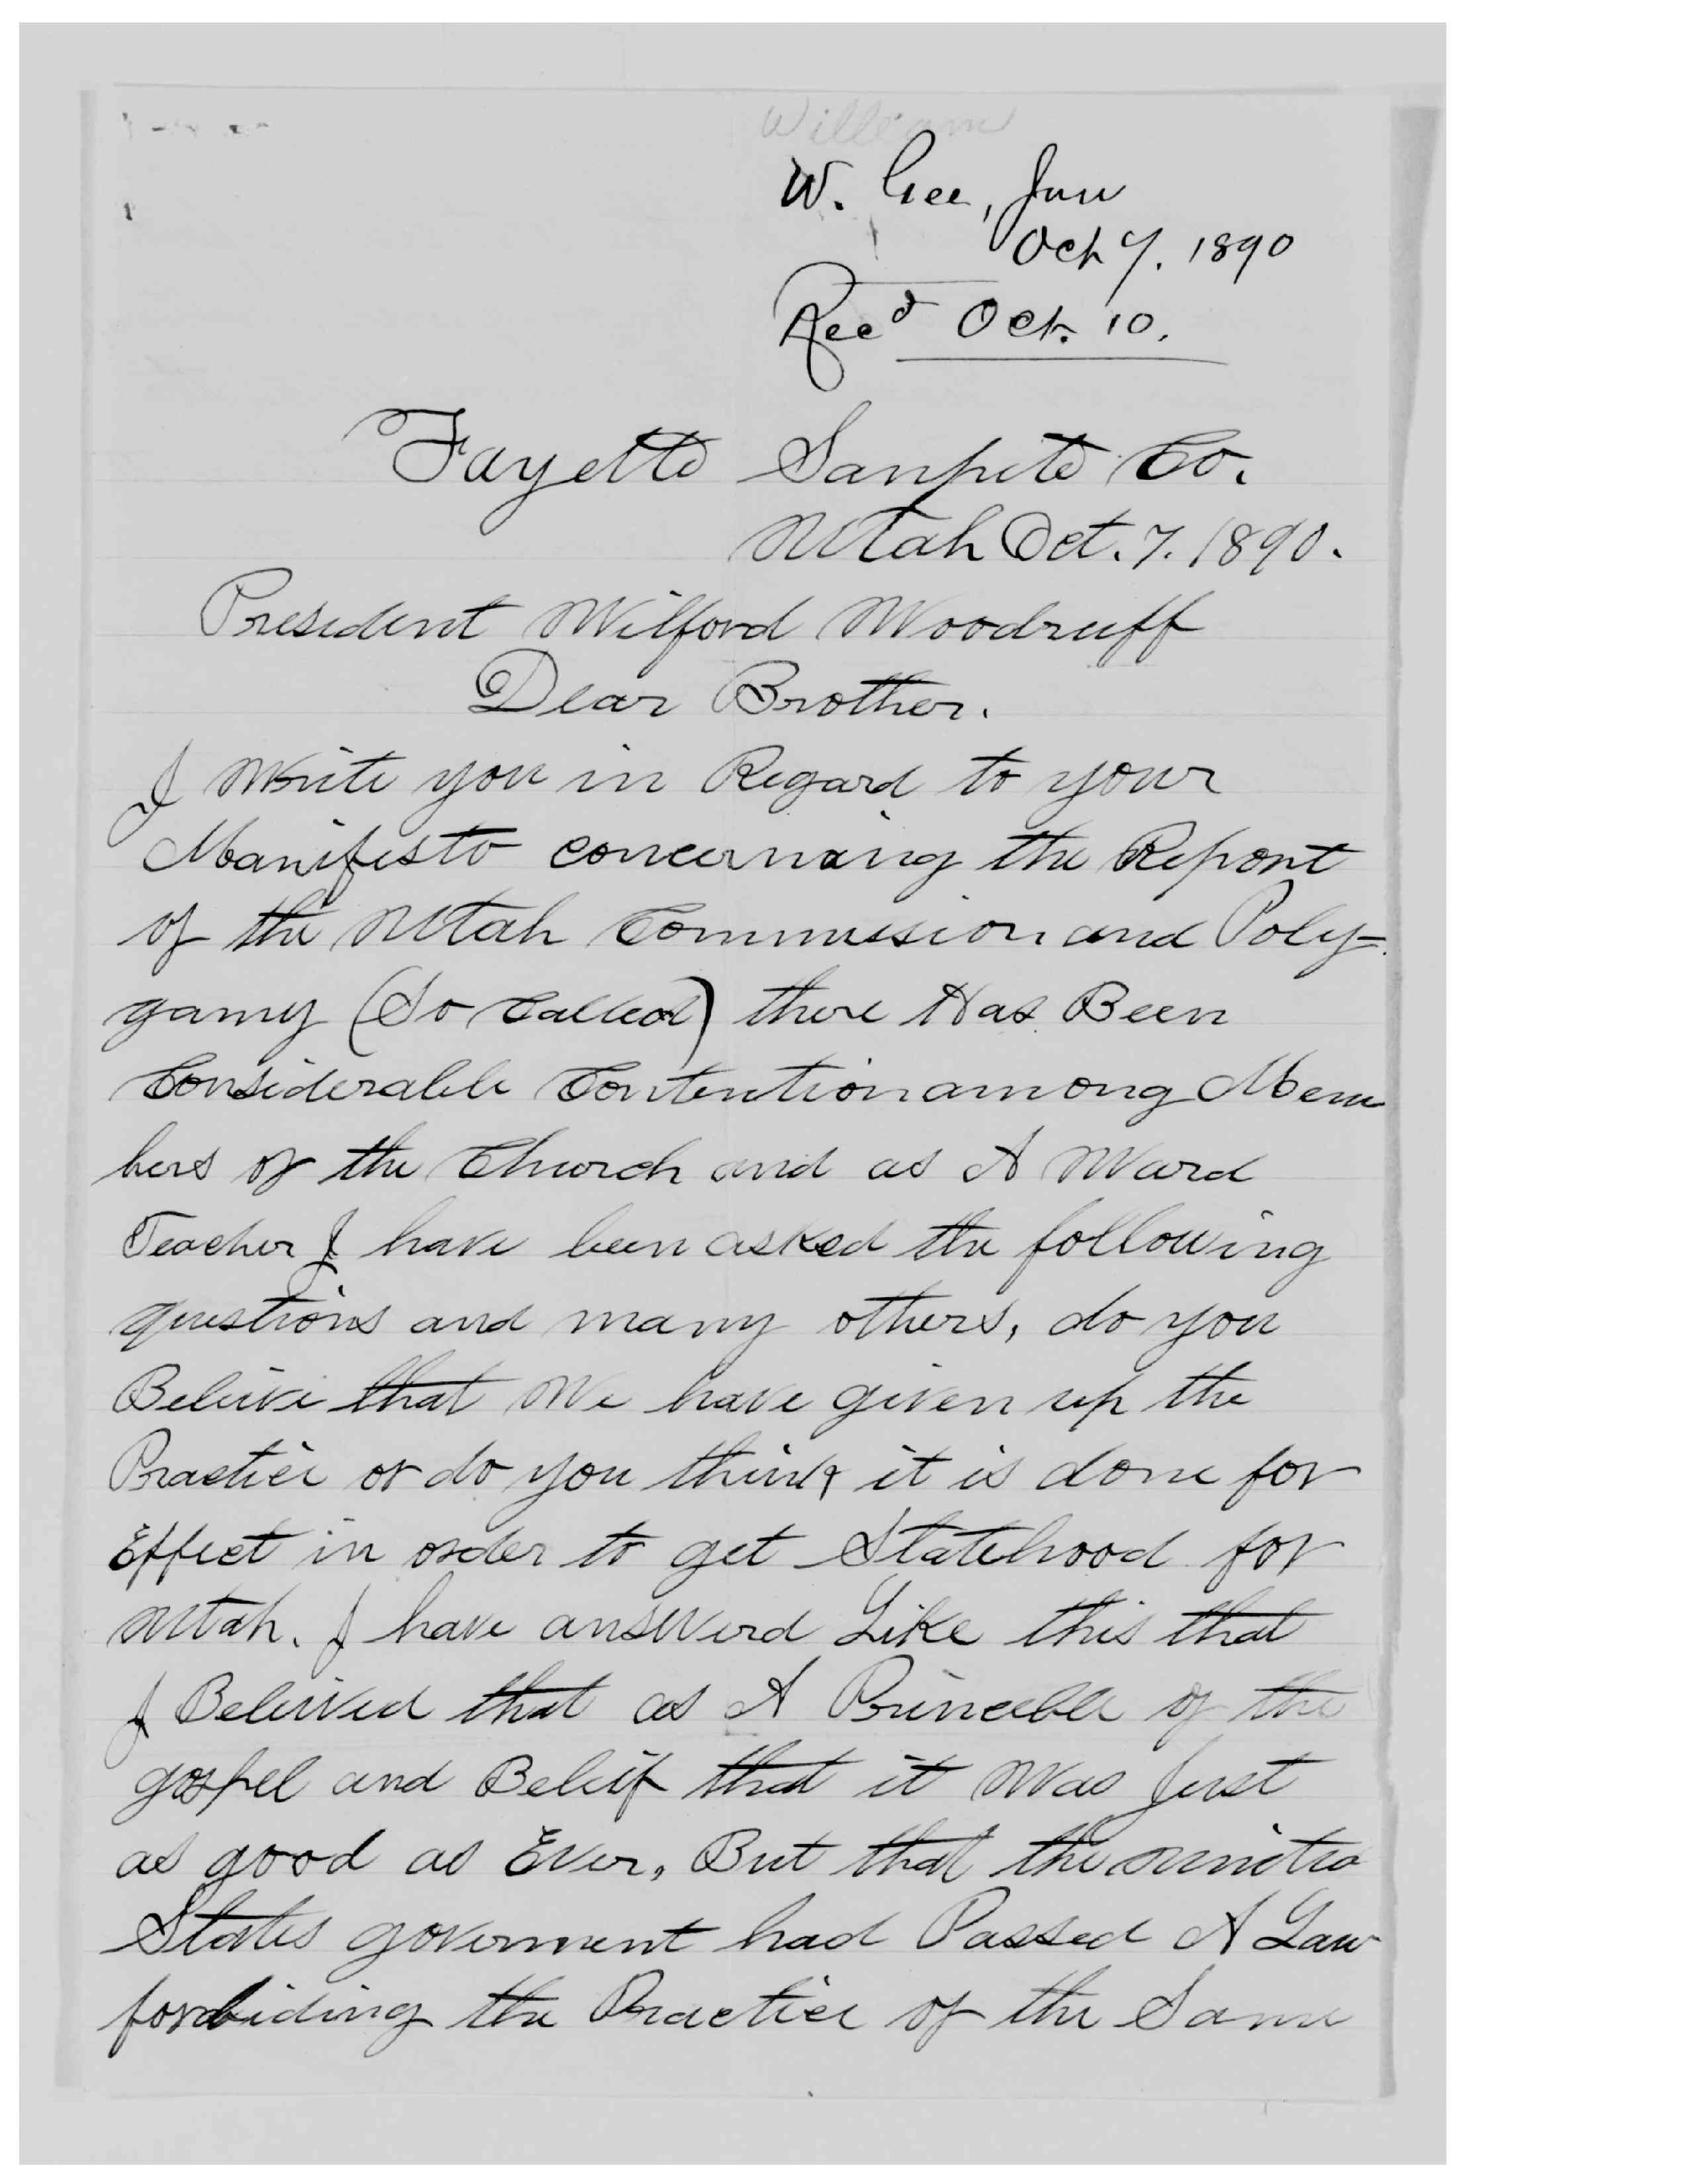 William
W. Gee, Jun
Oct 7. 1890
Rec^d Oct. 10.
Fayette Sanpete Co.
Utah Oct. 7. 1890.
President Wilford Woodruff
Dear Brother.
I Write you in Regard to your
Manifesto concerning the Report
of the Utah Commission and Poly=
gamy (So Called) there Has Been
Considerable Contention among Mem
bers of the Church and as A Ward
Teacher I have been asked the following
questions and many others, do you
Believe that We have given up the
Practice or do you think it is done for
Effect in order to get Statehood for
Utah. I have answerd Like this that
I Believed that as A Princeble of the
gospel and Belief that it Was Just
as good as Ever, But that the united
States goverment had Passed A Law
forbiding the Practice of the Same